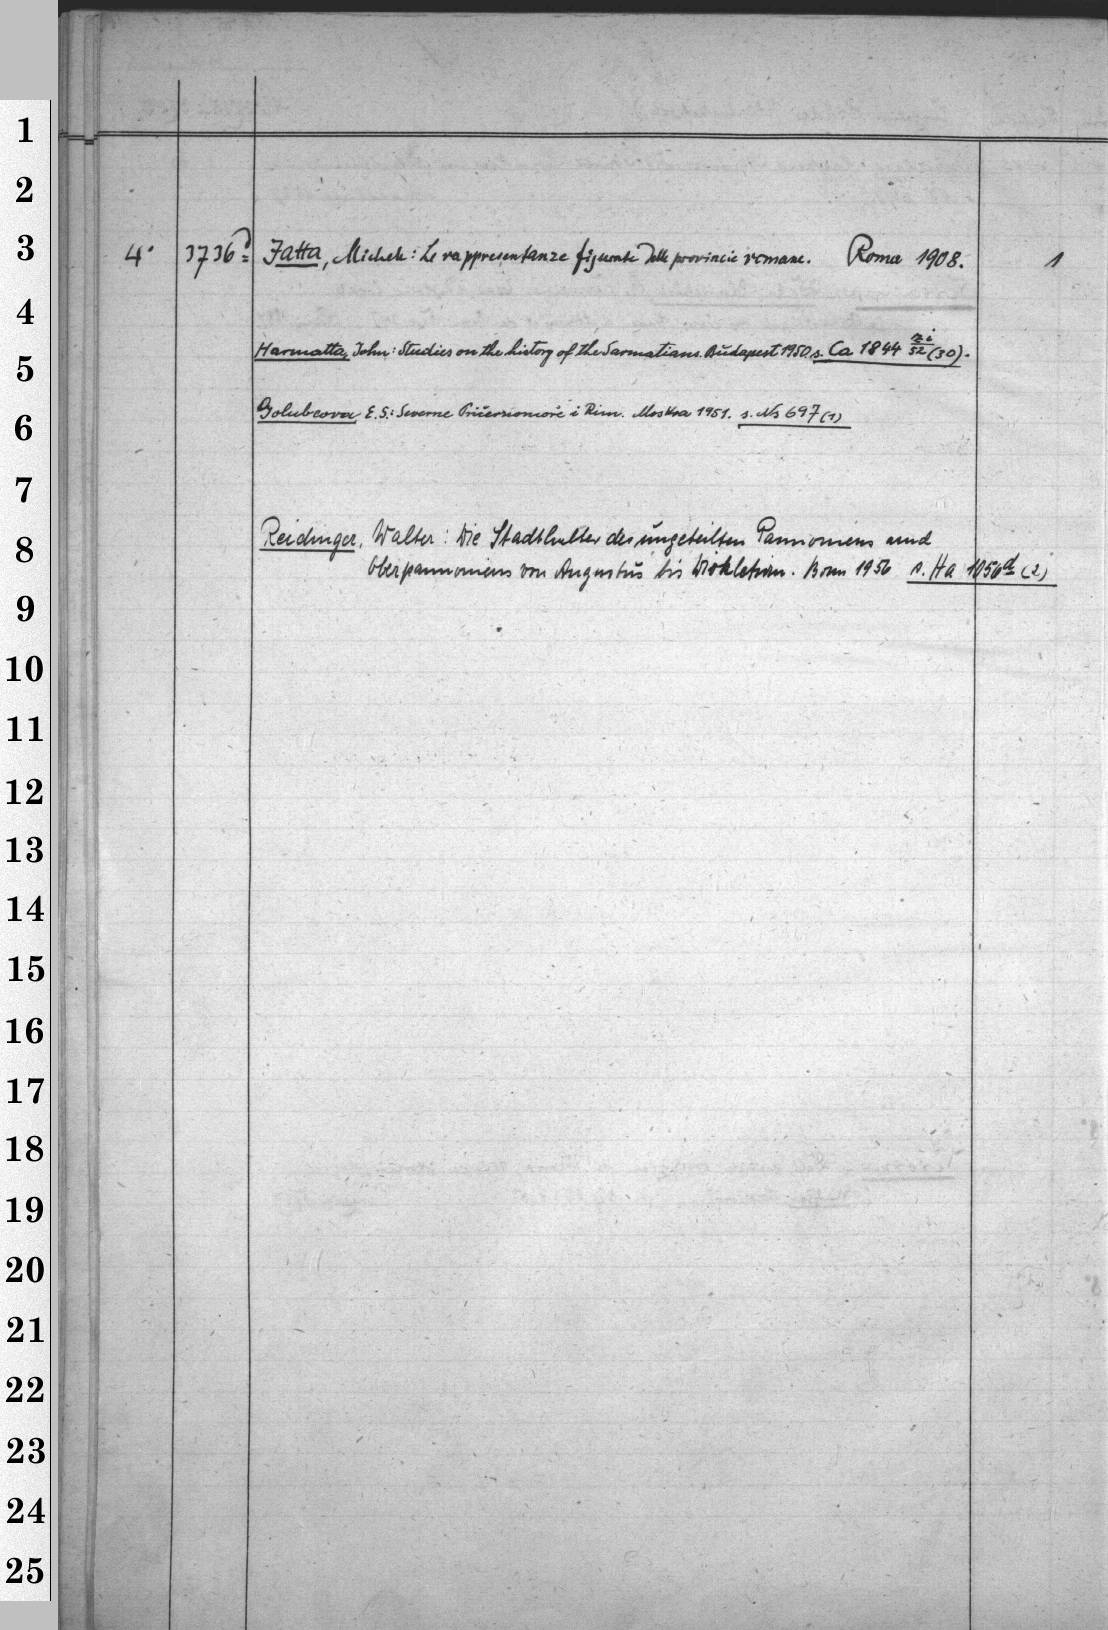 1
2
3
4
5
6
7
8
9
10
11
12
13
14
15
16
17
18
19
20
21
22
23
24
25
4° 3736d Jatta, Michele: Le rappresentanze figurate delle provincie romane. Roma 1908. 1
Harmatta, John: Studies on the history of the Sarmatians. Budapest 1950 s. Ca 1844 52 (30).
Golubcova E.S.: Severne Pričernomorè i Rim. Moskva 1951. s. Ns 697 (1)
Reidinger, Walter: Die Stadthalter des ungeteilten Pannoniens und
Oberpannoniens von Augustus bis Diokletian. Bonn 1956 s. Ha 1056d (2)